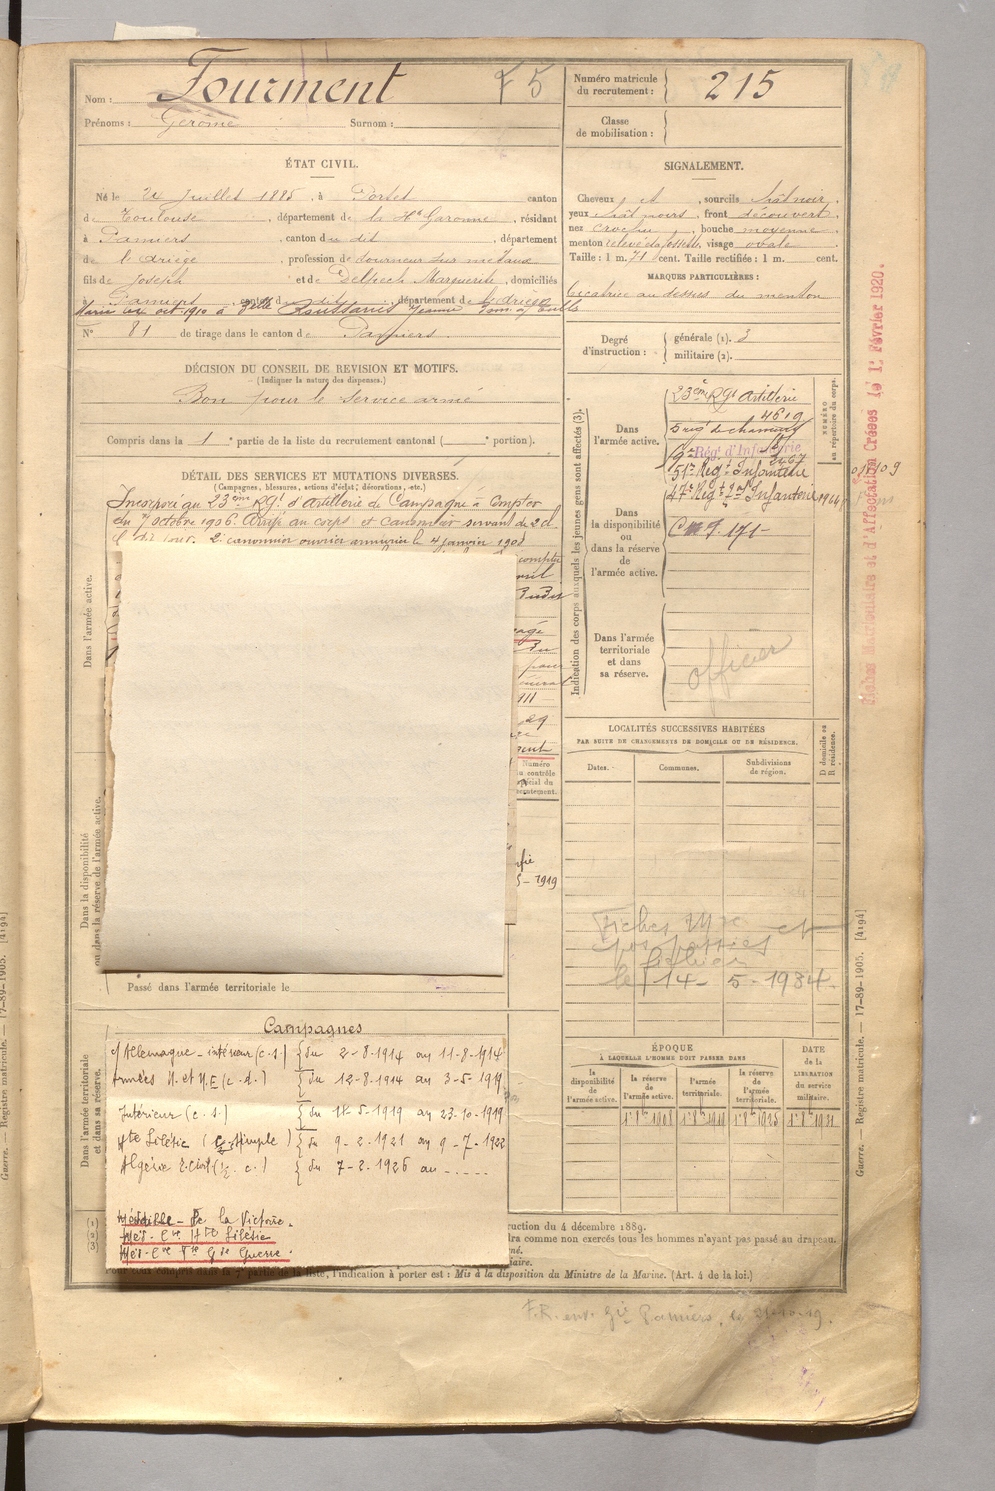 Nom : Fourment F 5
Prénoms : Gérôme Surnom :
Numéro matricule du recrutement : 215
Classe de mobilisation :
ÉTAT CIVIL.
Né le 24 Juillet 1885, à Portet canton
de Toulouse, département de la Hte Garonne, résidant
à Pamiers, canton du dit, département
de l'Ariège, profession de tourneur sur métaux
fils de Joseph et de Delpech Marguerite, domiciliés
à Pamiers, canton du dit, département de l'Ariège
Marié oct. 1910 à Delle Jeanne
N° 81 de tirage dans le canton de Pamiers.
DÉCISION DU CONSEIL DE REVISION ET MOTIFS.
(Indiquer la nature des dispenses.)
Bon pour le service armé
Compris dans la 1e partie de la liste du recrutement cantonal ( e portion).
DÉTAIL DES SERVICES ET MUTATIONS DIVERSES.
(Campagnes, blessures, actions d'éclat, décorations, etc.)
Incorporé au 23eme Rgt d'Artillerie de Campagne à compter
du 7 octobre 1906. Arrivé au corps et canonnier servant de 2e cl.
le dit jour. 2e canonnier ouvrier armurier le 4 janvier 1908
Dans l'armée active.
Dans la disponibilité ou dans la réserve de l'armée active.
1919
Passé dans l'armée territoriale le
Dans l'armée territoriale et dans sa réserve.
Campagnes
c/ Allemagne - intérieur (c.s) { du 2-8-1914 au 11-8-1914
Armées N. et N.E (c.d.) { du 12-8-1914 au 3-5-1919
Intérieur (c.s) { du 18-5-1919 au 23-10-1919
Hte Silésie (c. simple) { du 9-2-1921 au 9-7-1922
Algérie { du 7-2-1926 au .....
Médaille - de la Victoire.
Méd. Cve Hte Silésie
Méd. Cve Gde Guerre.
SIGNALEMENT.
Cheveux et, sourcils chât noir,
yeux chât noirs, front découvert,
nez crochu, bouche moyenne,
menton relevé à fossette, visage ovale
Taille : 1 m. 71 cent. Taille rectifiée : 1 m. cent.
MARQUES PARTICULIÈRES :
Cicatrice au dessus du menton
Degré d'instruction : générale (1). 3
militaire (2).
Indication des corps auxquels les jeunes gens sont affectés (3).
NUMÉRO au répertoire du corps.
Dans l'armée active.
23eme Rgt Artillerie
4619
Rég. d'Infanterie
51e Regt Infanterie
47e Regt Infanterie
Dans la disponibilité ou dans la réserve de l'armée active.
171
Dans l'armée territoriale et dans sa réserve.
officier
LOCALITÉS SUCCESSIVES HABITÉES
PAR SUITE DE CHANGEMENTS DE DOMICILE OU DE RÉSIDENCE.
Dates. Communes. Subdivisions de région. D domicile ou R résidence.
Fiches Mle et
fichier
le 14-5-1934
ÉPOQUE
À LAQUELLE L'HOMME DOIT PASSER DANS
la disponibilité de l'armée active. la réserve de l'armée active. l'armée territoriale. la réserve de l'armée territoriale. DATE de la LIBÉRATION du service militaire.
1er 8bre 1908 1er 8bre 1919 1er 8bre 1925 1er 8bre 1931
ruction du 4 décembre 1889.
dra comme non exercés tous les hommes n'ayant pas passé au drapeau.
l'indication à porter est : Mis à la disposition du Ministre de la Marine. (Art. 4 de la loi.)
F.R. env. Gie Pamiers, le 21-10-19.
Fiches Matriculaire et d'Affectation Créées le 1er Février 1920.
Guerre. — Registre matricule. — 17-89-1905. [4194]
Guerre. — Registre matricule. — 17-89-1905. [4194]